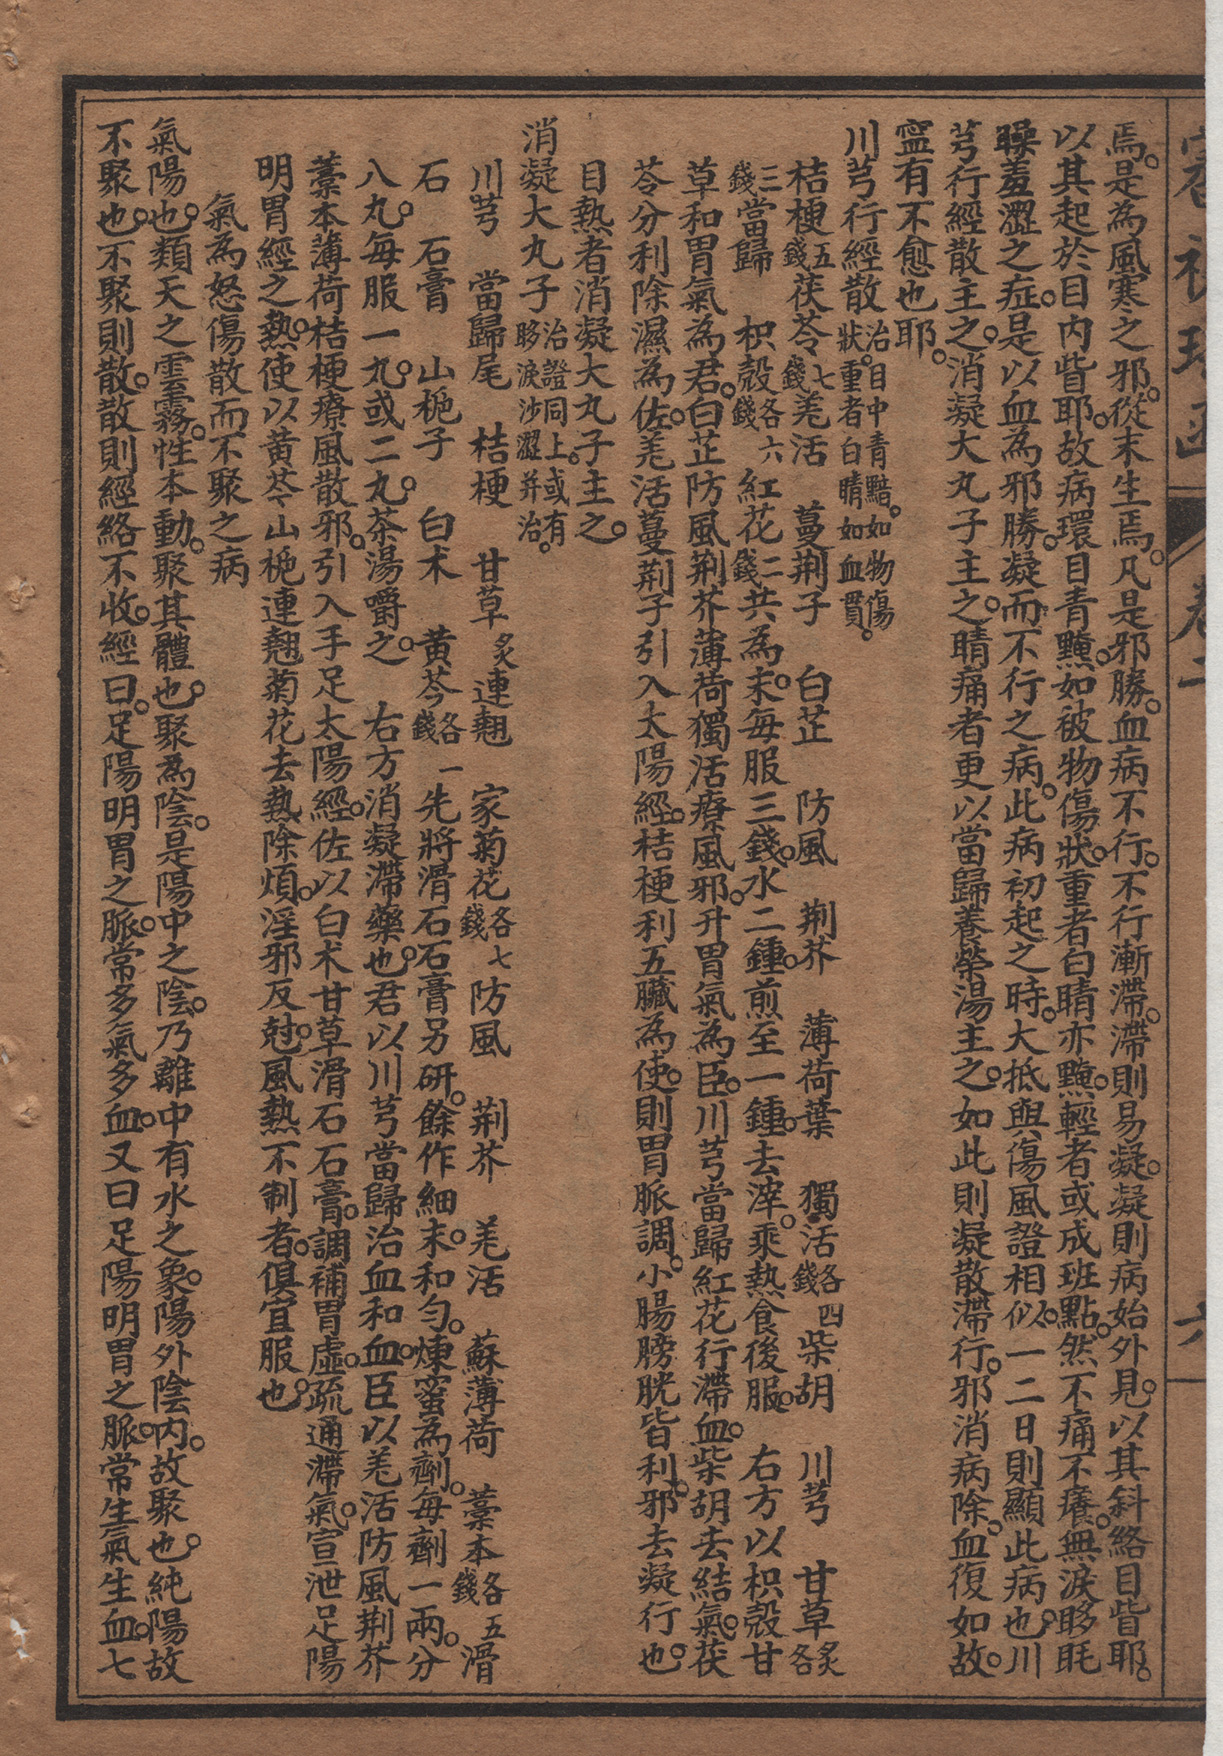 焉。是為風寒之邪。從末生焉。凡是邪勝。血病不行。不行漸滯。滯則易凝。凝則病始外見。以其斜絡目眥耶。
以其起於目內眥耶。故病環目青黯。如被物傷狀。重者白睛亦黯。輕者或成斑點。然不痛不癢。無淚眵眊
矂羞澀之症。是以血為邪勝。凝而不行之病。此病初起之時。大抵與傷風證相似。一二日則顯此病也。川
芎行經散主之。消凝大丸子主之。睛痛者更以當歸養榮湯主之。如此則凝散滯行。邪消病除。血復如故。
寍有不愈也耶。
川芎行經散 治目中青黯。如物傷狀。重者白睛如血貫。
桔梗五錢 茯苓七錢 羌活 蔓荆子 白芷 防風 荆芥 薄荷葉 獨活各四錢 柴胡 川芎 甘草炙各
三錢 當歸 枳殼各六錢 紅花二錢 共為末。每服三錢。水二鍾。煎至一鍾。去滓。乘熱食後服。 右方以枳殼甘
草和胃氣為君。白芷防風荆芥薄荷獨活療風邪。升胃氣為臣。川芎當歸紅花行滯血。柴胡去結氣。茯
苓分利除濕為佐。羌活蔓荆子引入太陽經。桔梗利五臟為使。則胃脈調。小腸膀胱皆利。邪去凝行也。
目熱者消凝大丸子主之。
消凝大丸子 治證同上。或有眵淚沙澀并治。
川芎 當歸尾 桔梗 甘草炙 連翹 家菊花各七錢 防風 荆芥 羌活 蘇薄荷 藁本各五錢 滑
石 石膏 山梔子 白术 黄芩各一錢 先將滑石石膏另研。餘作細末。和勻。煉蜜為劑。每劑一兩。分
八丸。每服一丸。或二丸。茶湯嚼之。 右方消凝滯藥也。君以川芎當歸治血和血。臣以羌活防風荆芥
藁本薄荷桔梗療風散邪。引入手足太陽經。佐以白术甘草滑石石膏。調補胃虛。疏通滯氣。宣泄足陽
明胃經之熱。使以黄芩山梔連翹菊花去熱除煩。淫邪反尅。風熱不制者。俱宜服也。
氣為怒傷散而不聚之病
氣陽也。類天之雲霧。性本動。聚其體也。聚為陰。是陽中之陰。乃離中有水之象。陽外陰內。故聚也。純陽故
不聚也。不聚則散。散則經絡不收。經曰。足陽明胃之脈。常多氣多血。又曰足陽明胃之脈。常生氣生血。七